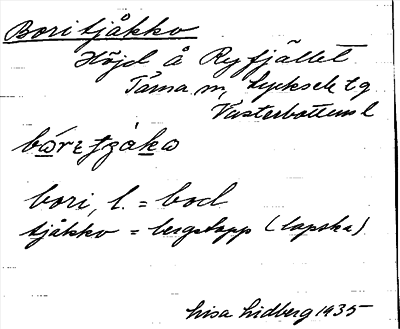 Bori tjåkko
Höjd å Ryfjället
Tärna sn, Lycksele tg
Västerbottens l
bori, l. = bod
tjåkko = bergstopp (lapska)
Lisa Lidberg 1935